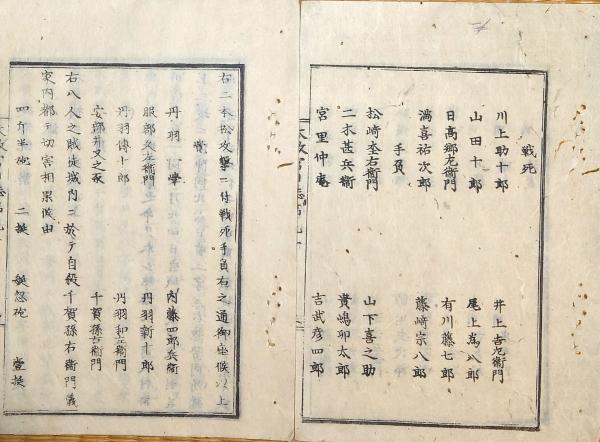 戦死
川上助十郎 井上吉左衛門
山田十郎 尾上篤八郎
日高郷左衛門 有川藤七郎
鴻喜祐次郎 藤崎宗八郎
手負
松崎丞右衛門 山下喜之助
二木甚兵衛 貴嶋卯太郎
宮里仲庵 吉武彦四郎
右二本松攻撃ニ付戦死手負右之通御座候以上
丹羽 内藤四郎兵衛
服部久左衛門 丹羽新十郎
丹羽傳十郎 丹羽和左衛門
安部井又之丞 千賀孫右衛門
右八人之賊徒城内ニ於テ自殺千賀孫右衛門儀
家内都テ切害相果候由
四斤半砲 二挺 砲 壹挺
太政官日誌